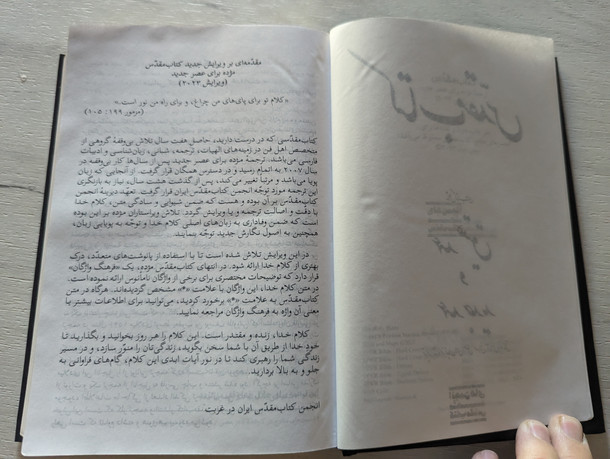 مقدّمه‌ای بر ویرایش جدید کتاب‌مقدّس
مژده برای عصر جدید
(ویرایش ۲۰۲۳)
«کلام تو برای پای‌های من چراغ، و برای راه من نور است.»
(مزمور ۱۱۹: ۱۰۵)
کتاب‌مقدّسی که در دست دارید، حاصل هفت سال تلاش بی‌وقفهٔ گروهی از
متخصص اهل فن در زمینه‌های الهیات، ترجمه، شناسی، زبان‌شناسی و ادبیات
فارسی می‌باشد. ترجمهٔ مژده برای عصر جدید پس از سال‌ها کار بی‌وقفه در
سال ۲۰۰۷ به اتمام رسید و در دسترس همگان قرار گرفت. از آنجایی که زبان
پویا می‌باشد و مرتباً تغییر می‌کند، پس از گذشت هشت سال، نیاز به بازنگری
این ترجمه مورد توجّه انجمن کتاب‌مقدّس ایران قرار گرفت. تعهّد دیرینهٔ انجمن
کتاب‌مقدّس بر آن بوده و هست که ضمن شیوایی و سادگی متن، کلام خدا
با دقّت و اصالت ترجمه و یا ویرایش گردد. تلاش ویراستاران مژده بر این بوده
است، که ضمن وفاداری به زبان‌های اصلی کلام خدا و توجّه به پویایی زبان،
همچنین به اصول نگارش جدید توجّه بنمایند.
در این ویرایش تلاش شده است تا با استفاده از پانوشت‌های متعدّد، درک
بهتری از کلام خدا ارائه شود. در انتهای کتاب‌مقدّس مژده، یک «فرهنگ واژگان»
قرار دارد که توضیحات مختصری برای برخی از واژگان نامأنوس ارائه نموده است.
در متن کلام خدا، این واژگان با علامت «*» مشخص گردیده‌اند. هرگاه در متن
کتاب‌مقدّس به علامت «*» برخورد کردید، می‌توانید برای اطلاعات بیشتر با
معنی آن واژه به فرهنگ واژگان مراجعه نمایید.
کلام خدا، زنده و مقتدر است. این کلام را هر روز بخوانید و بگذارید تا
خود خدا از طریق آن با شما سخن بگوید، زندگی‌تان را منوّر سازد، و در مسیر
زندگی شما را رهبری کند تا در نور آیات ابدی این کلام، گام‌های فراوانی به
جلو و به بالا بردارید.
انجمن کتاب‌مقدّس ایران در غربت